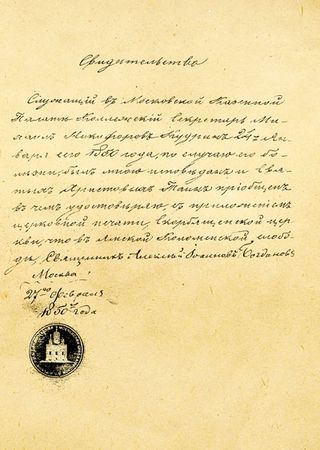 Свидетельство
Служащій въ Московской Казенной
Палатѣ Коллежскій Секретарь Ми-
хаилъ Никифоровъ 24го Ян-
варя сего 1850 года, по случаю его бо-
лѣзни, былъ мною исповѣданъ и Свя-
тыхъ Христовыхъ Таинъ пріобщенъ
въ чемъ удостовѣряю, съ приложеніемъ
церковной печати, Скорбященской цер-
кви, что въ Ямской Коломенской слобо-
дѣ, Священникъ Алексѣй Іоанновъ Богдановъ
Москва
27го Февраля
1850го года